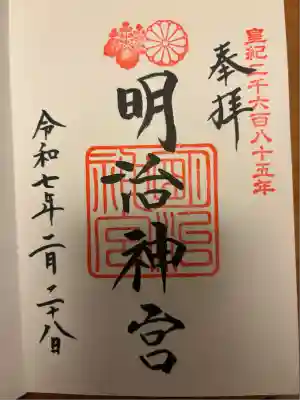 皇紀二千六百八十五年
奉拝
明治神宮
明治神宮
令和七年二月二十八日